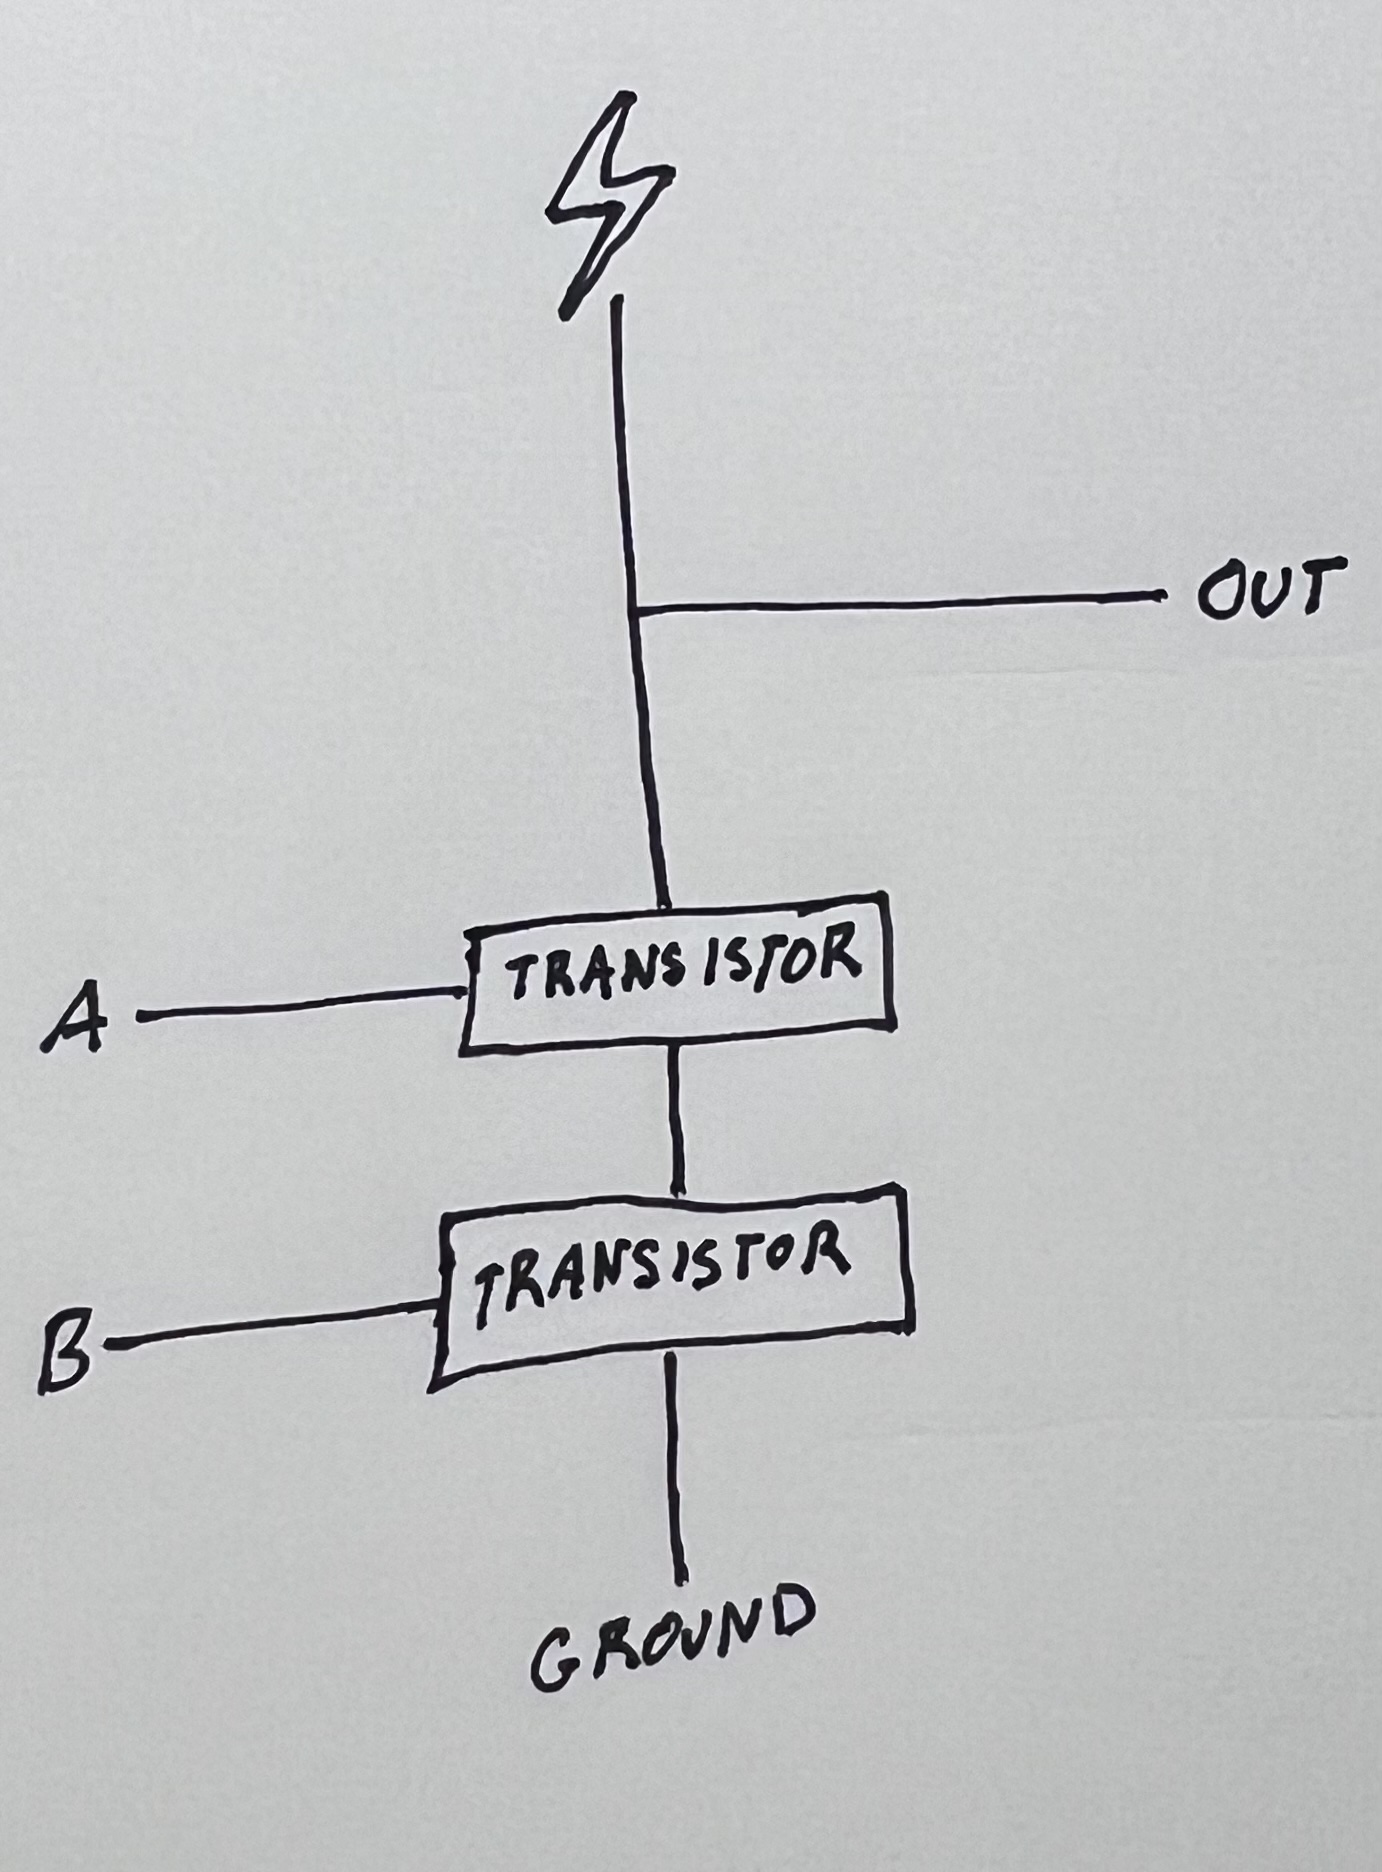 OUT
A
TRANSISTOR
B
TRANSISTOR
GROUND